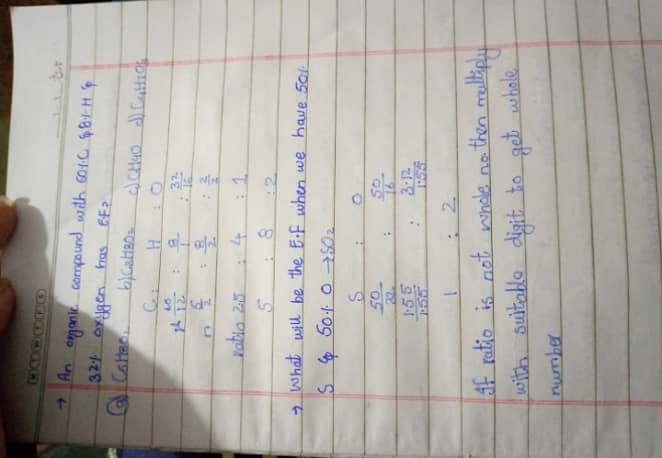 → An organic compound with 60%C & 8% H &
32% oxygen has E.F?
(a) C5H8O2 b) C4H8O2 c) CH4O
C : H : O
% 60/12 : 8/1 : 32/16
n 5/2 : 8/2 : 2/2
ratio 2.5 : 4 : 1
5 : 8 : 2
→ What will be the E.F when we have 50%
S & 50% O → SO2
S : O
50/32 : 50/16
1.55/1.55 : 3.12/1.55
1 : 2
If ratio is not whole no. then multiply
with suitable digit to get whole
number